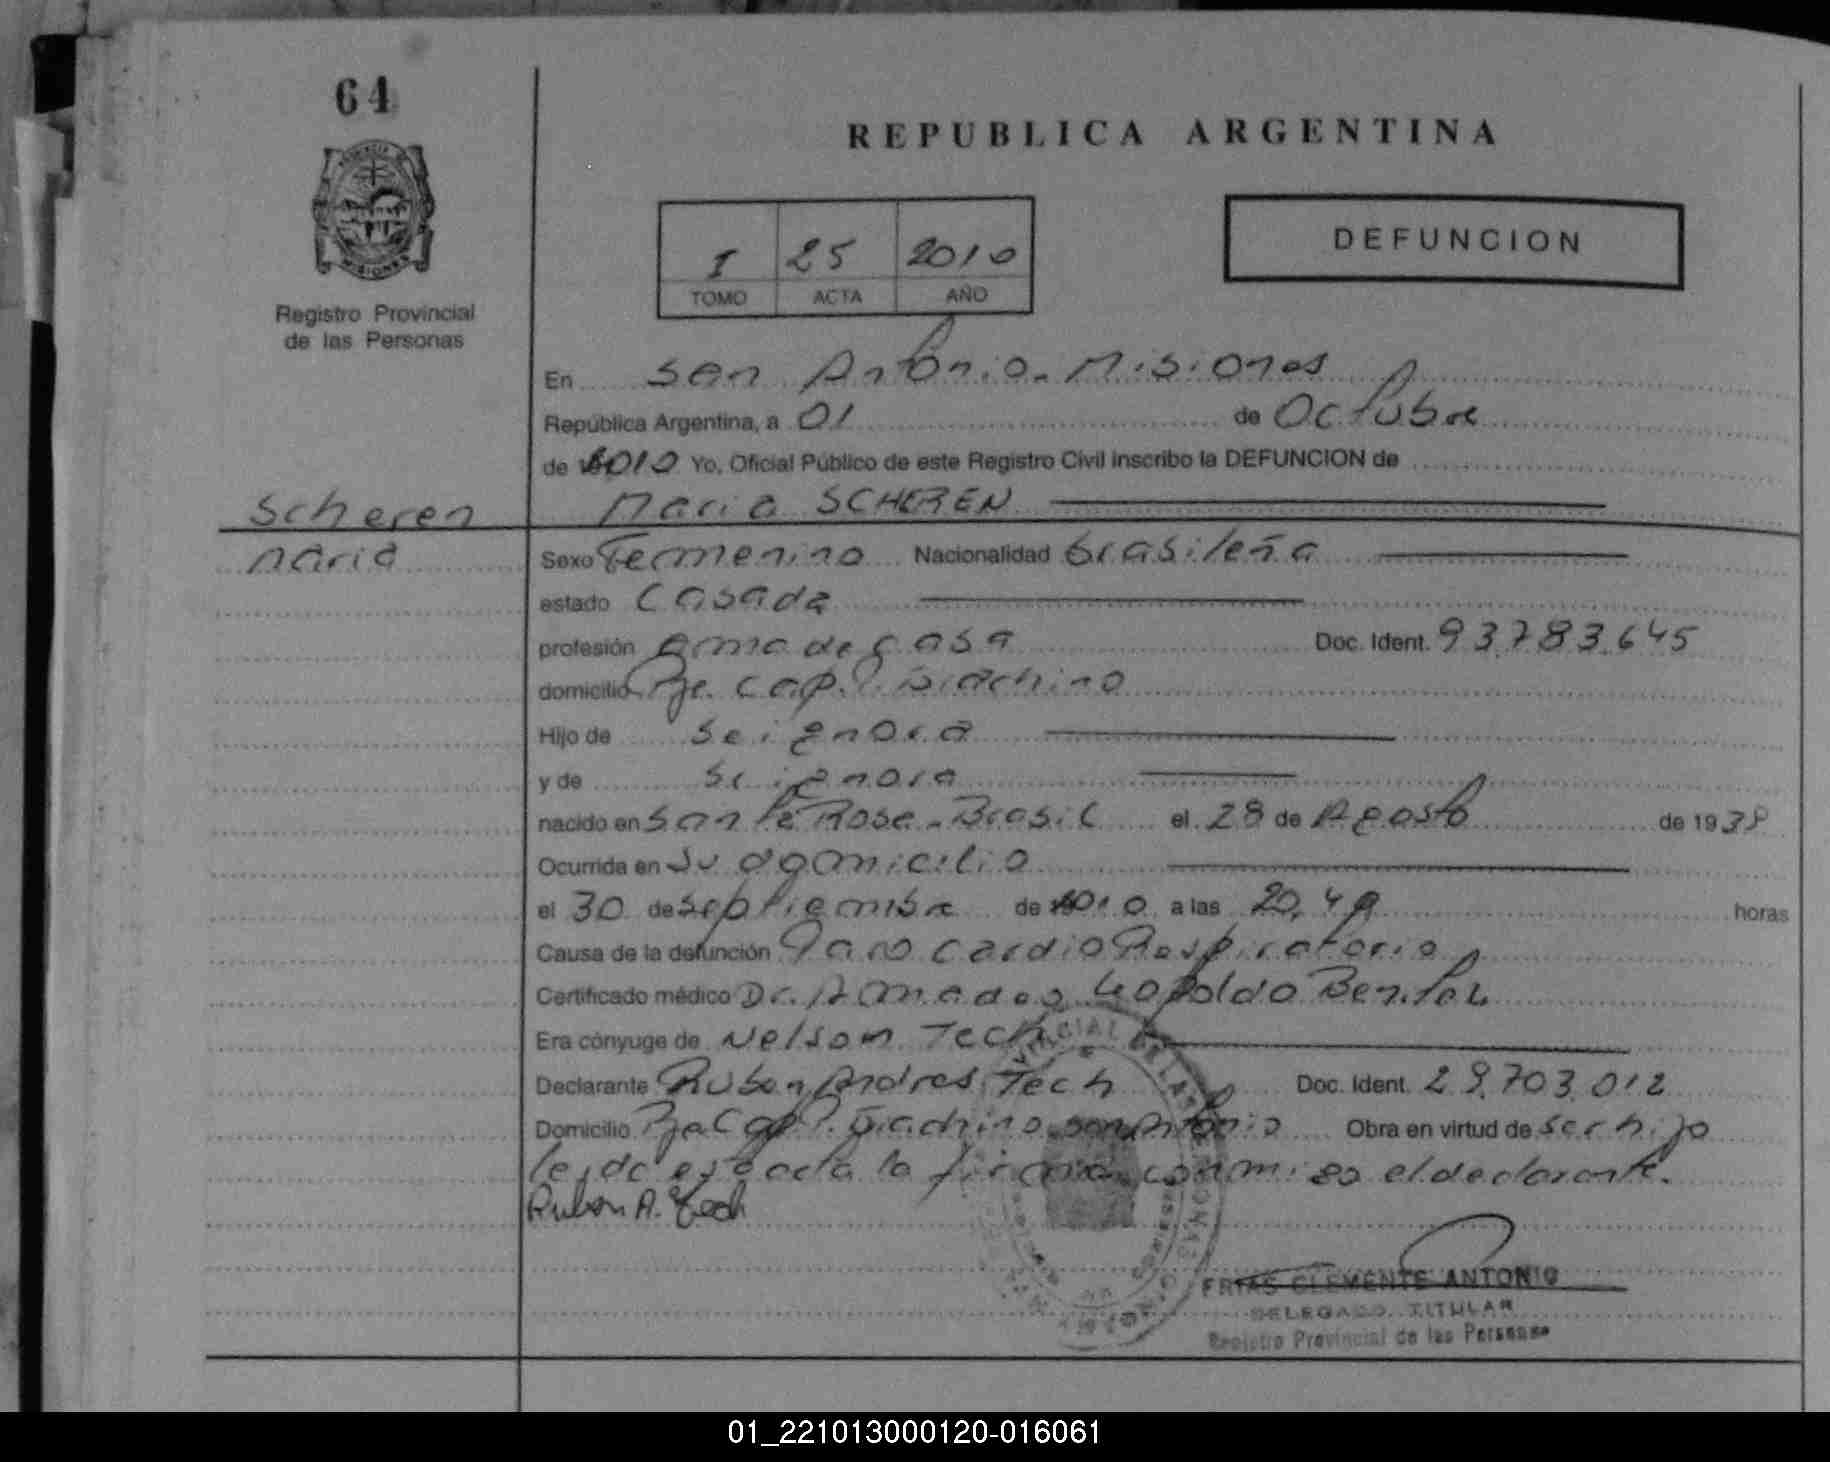 64
REPUBLICA ARGENTINA
DEFUNCION
I 25 2010
TOMO ACTA AÑO
MISIONES
Registro Provincial
de las Personas
En San Antonio - Misiones
República Argentina, a 01 de Octubre
de 2010 Yo, Oficial Público de este Registro Civil inscribo la DEFUNCION de
Scheren Maria SCHEREN
Maria
Sexo Femenino Nacionalidad brasileña
estado Casada
profesión ama de casa Doc. Ident. 93.783.645
domicilio Pje. Cap. Giachino
Hijo de Se ignora
y de Se ignora
nacido en Santa Rosa - Brasil el 28 de Agosto de 19
Ocurrida en Su domicilio
el 30 de septiembre de 2010 a las 20,49 horas
Causa de la defunción Paro Cardio Respiratorio
Certificado médico Dr. Amadeo Leopoldo Benitez
Era cónyuge de Nelsom Tech
Declarante Ruben Andres Tech Doc. Ident. 29.703.012
Domicilio Pje Cap. P. Giachino San Antonio Obra en virtud de ser hijo
leida esta acta la firma conmigo el declarante.
Ruben A. Tech
FRIAS CLEMENTE ANTONIO
DELEGADO TITULAR
Registro Provincial de las Personas
01_221013000120-016061